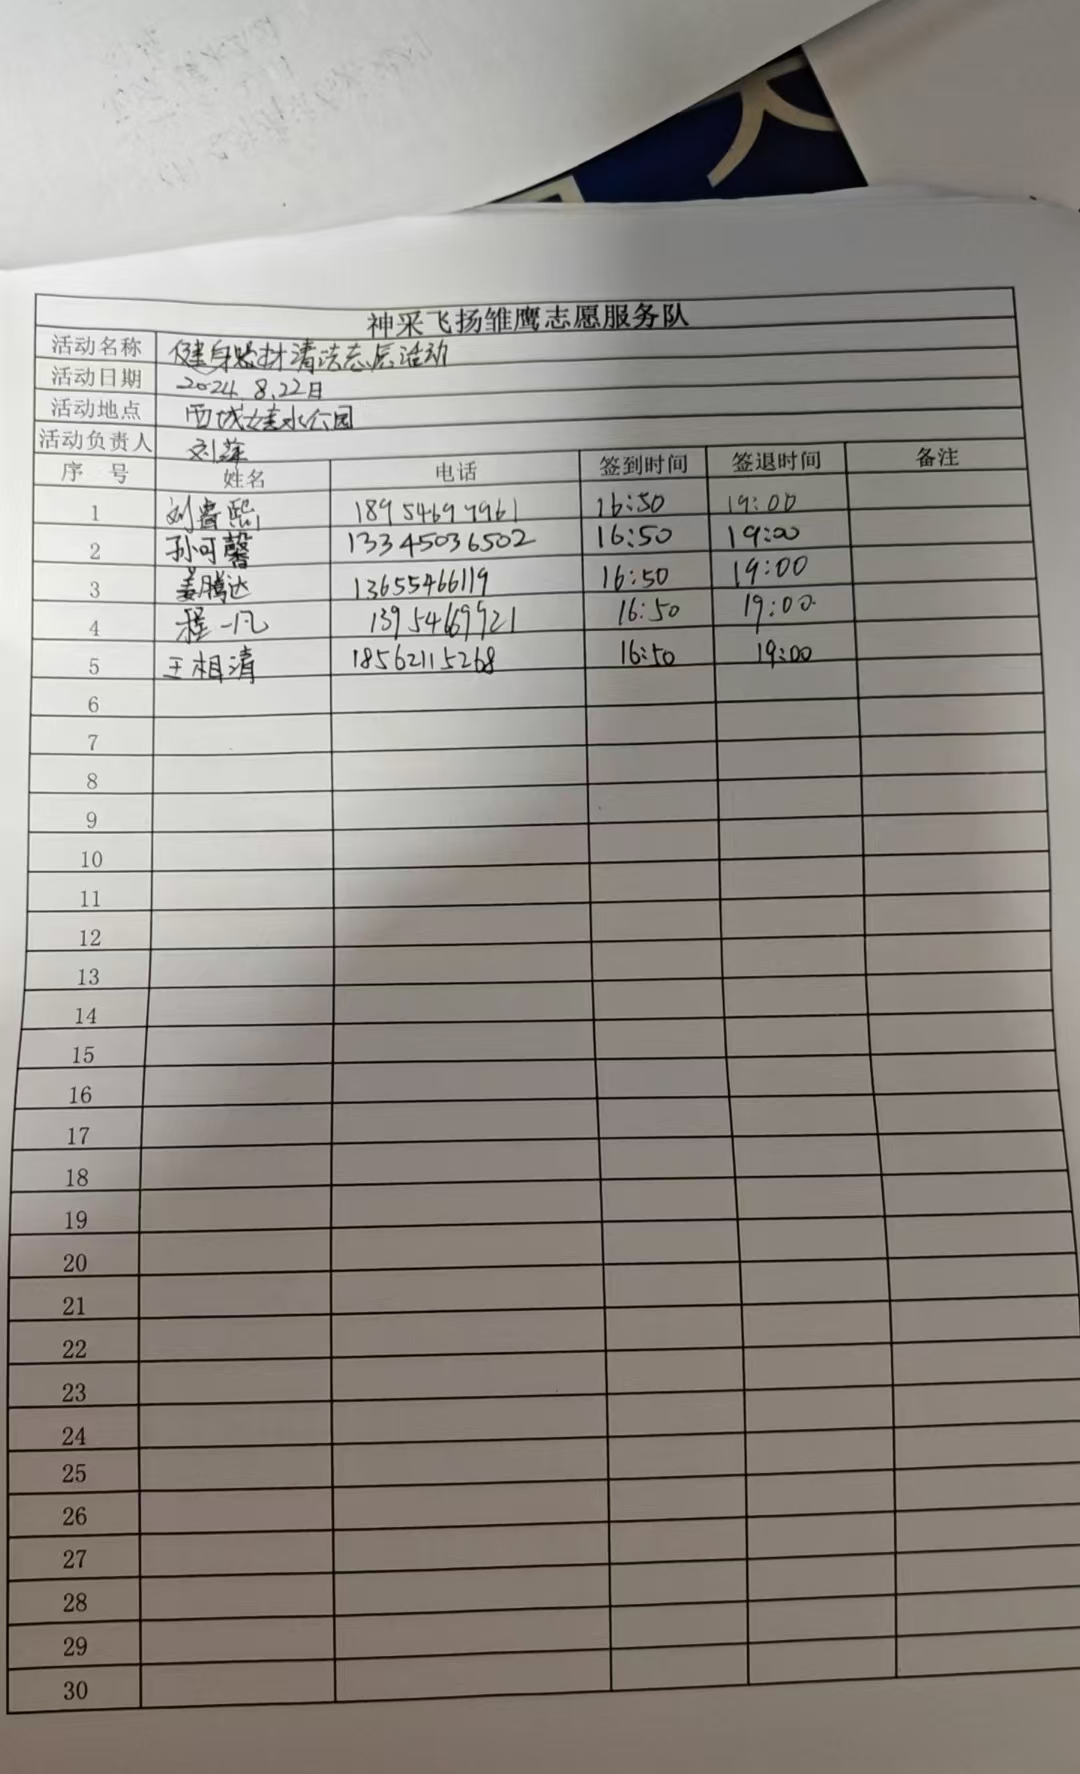 神采飞扬雏鹰志愿服务队
活动名称 健身器材清洁志愿活动
活动日期 2024.8.22日
活动地点 西城 水公园
活动负责人 刘萍
序号 姓名 电话 签到时间 签退时间 备注
1 刘睿熙 16:50 19:00
2 孙可馨 13345036502 16:50 19:00
3 姜腾达 13655466119 16:50 19:00
4 程一凡 13954669921 16:50 19:00
5 王相清 18562115268 16:50 19:00
6
7
8
9
10
11
12
13
14
15
16
17
18
19
20
21
22
23
24
25
26
27
28
29
30